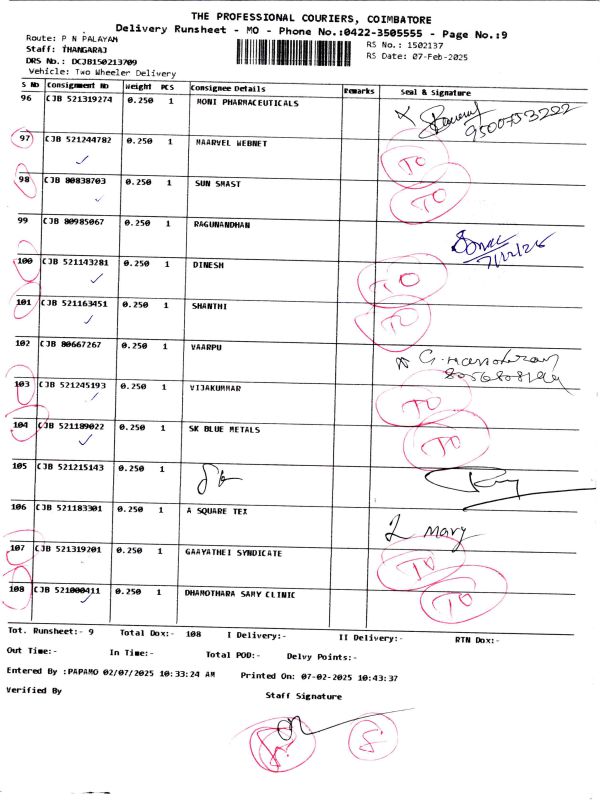 THE PROFESSIONAL COURIERS, COIMBATORE
Delivery Runsheet - MO - Phone No.:0422-3505555 - Page No.:9
Route: P N PALAYAM
RS No.: 1502137
Staff: THANGARAJ
RS Date: 07-Feb-2025
DRS No.: DCJB150213709
Vehicle: Two Wheeler Delivery
S No Consignment No Weight PCS Consignee Details Remarks Seal & Signature
96 CJB 521319274 0.250 1 MONI PHARMACEUTICALS
9500753222
97 CJB 521244782 0.250 1 MAARVEL WEBNET TO
98 CJB 80838703 0.250 1 SUN SMAST TO
99 CJB 80985067 0.250 1 RAGUNANDHAN
100 CJB 521143281 0.250 1 DINESH TO
101 CJB 521163451 0.250 1 SHANTHI TO
102 CJB 80667267 0.250 1 VAARPU
103 CJB 521245193 0.250 1 VIJAKUMMAR TO
104 CJB 521189022 0.250 1 SK BLUE METALS TO
105 CJB 521215143 0.250 1
106 CJB 521183301 0.250 1 A SQUARE TEX mary
107 CJB 521319201 0.250 1 GAAYATHEI SYNDICATE TO
108 CJB 521000411 0.250 1 DHAMOTHARA SAMY CLINIC TO
Tot. Runsheet:- 9 Total Dox:- 108 I Delivery:- II Delivery:- RTN Dox:-
Out Time:- In Time:- Total POD:- Delvy Points:-
Entered By :PAPAMO 02/07/2025 10:33:24 AM Printed On: 07-02-2025 10:43:37
Verified By Staff Signature